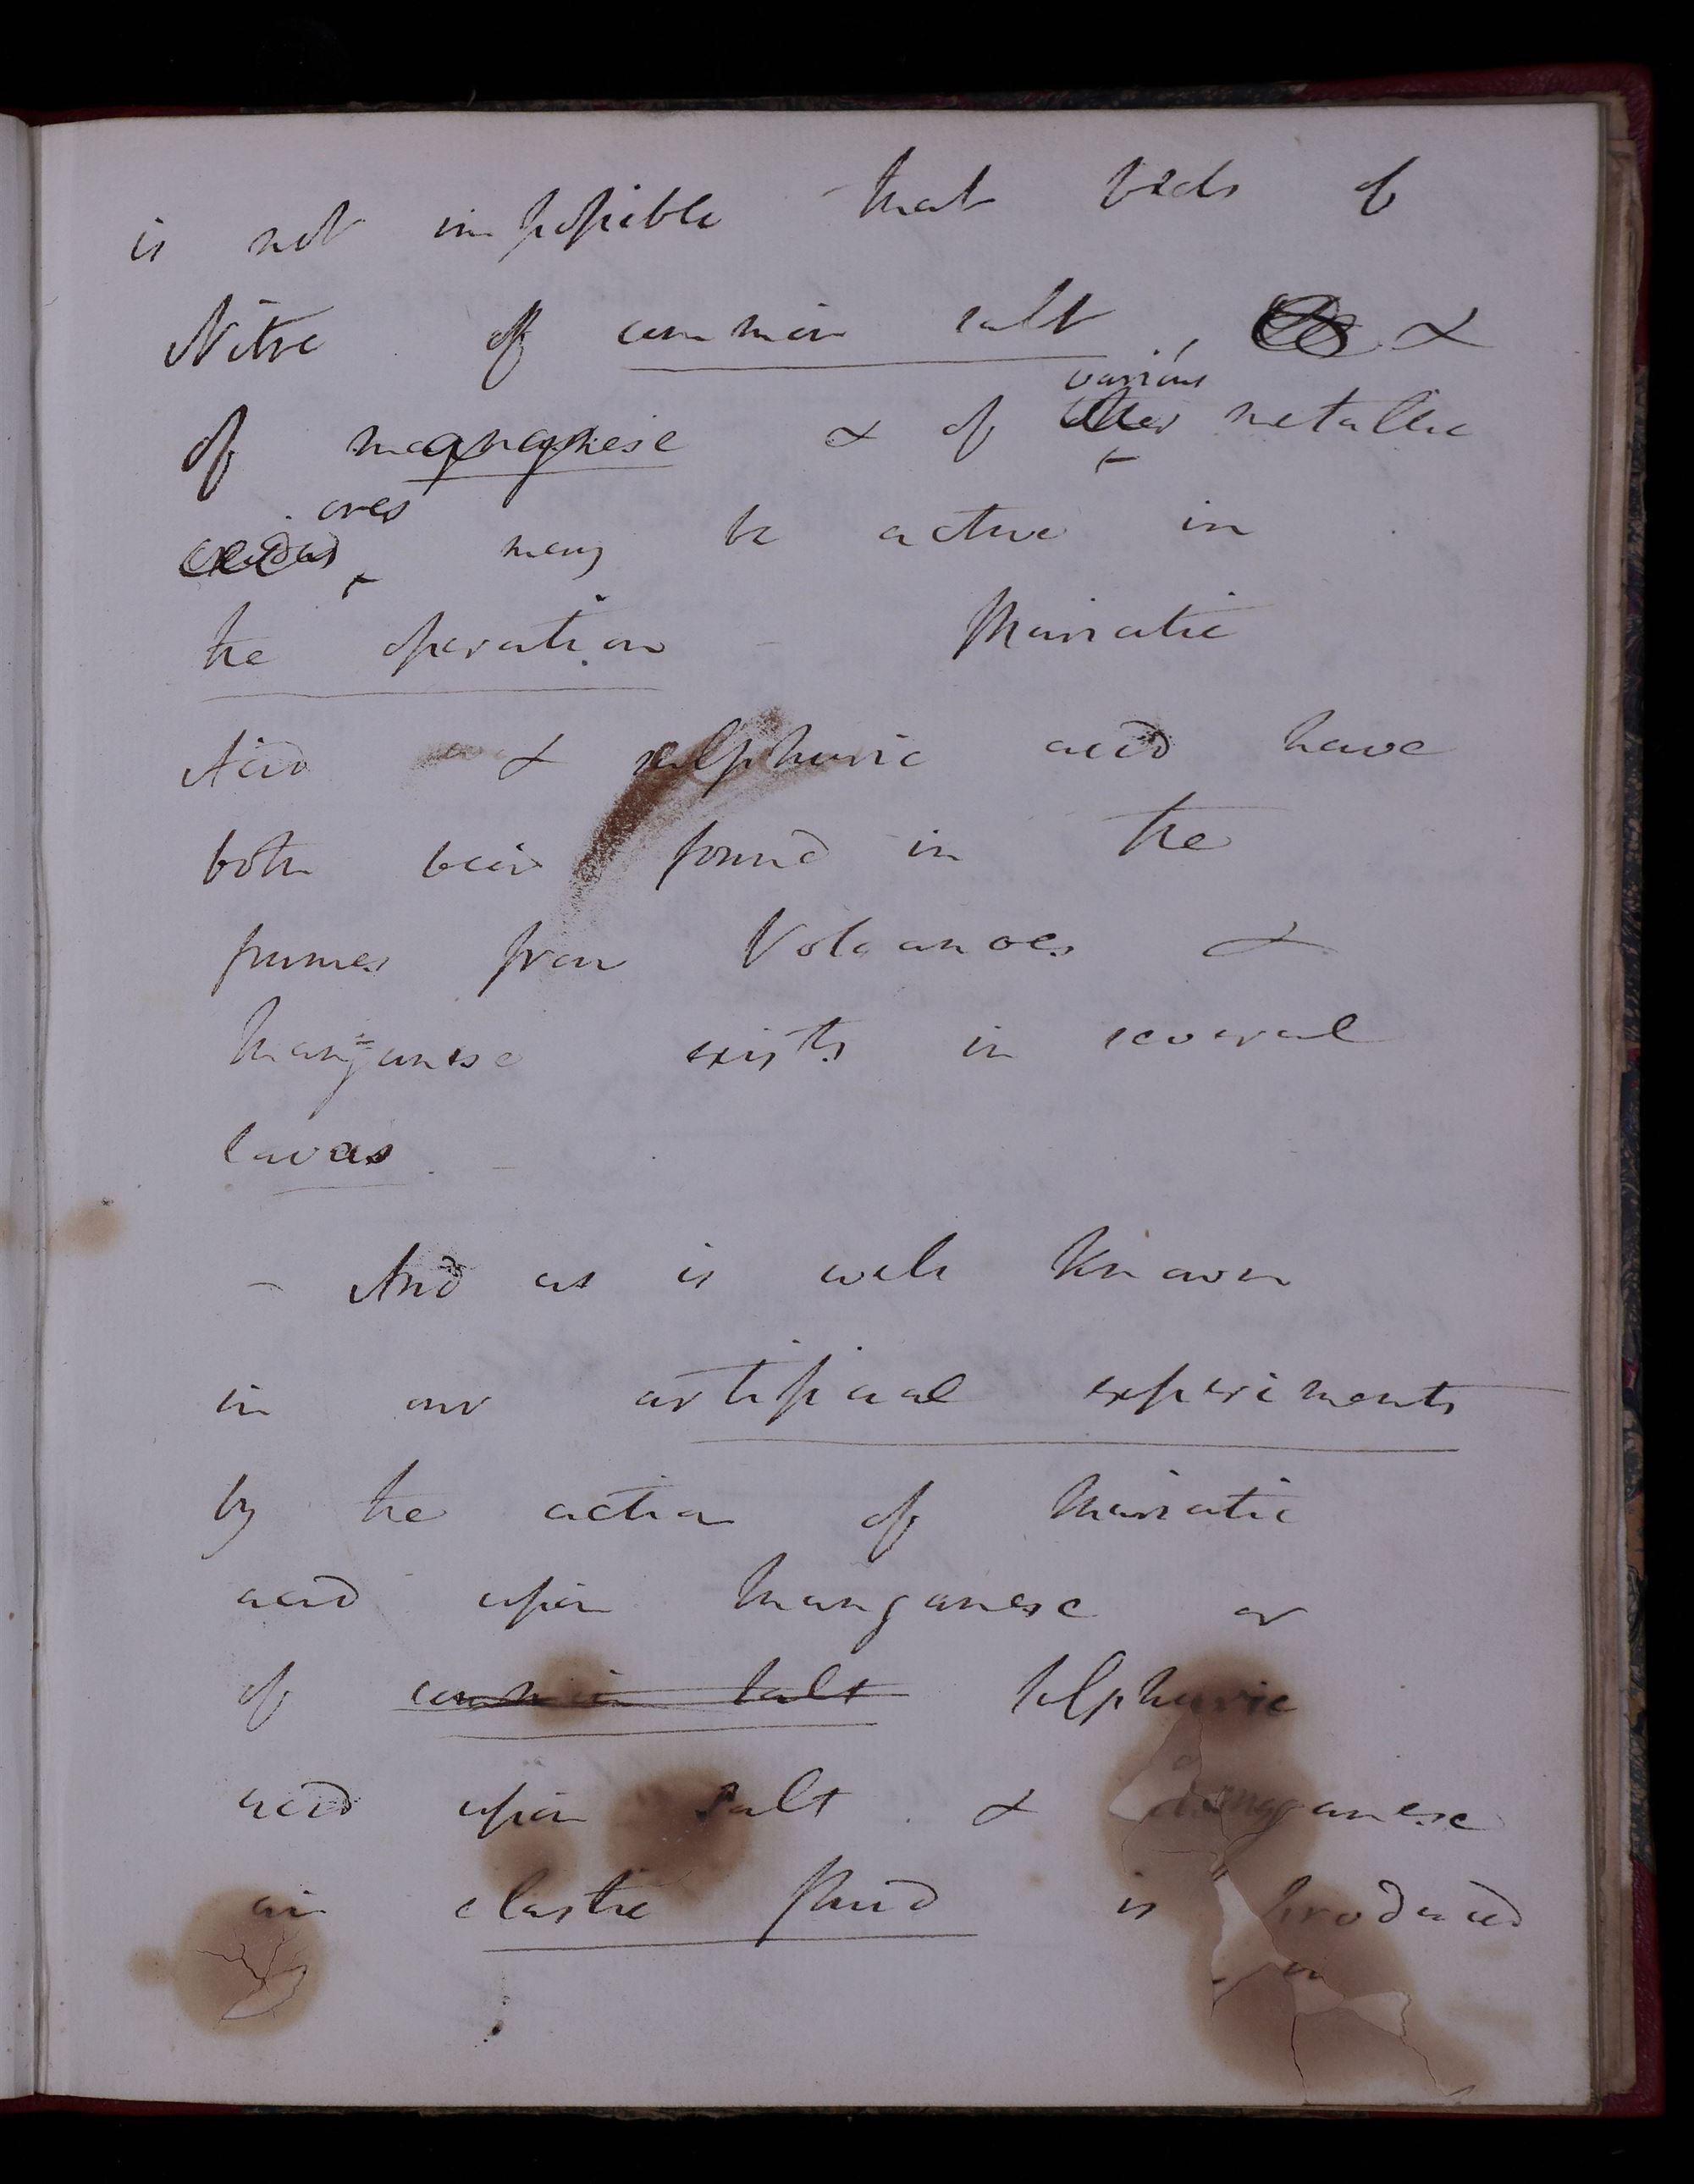 is not impossible that beds of
Nitre of common salt, &
of magnanese & of various metallic
ores may be active in
the operation - Muriatic
Acid & sulphuric acid have
both been found in the
fumes from Volcanoes &
Manganese exists in several
lavas. -
- And as is well known
in our artificial experiments
by the action of Muriatic
acid upon Manganese or
of common salt sulphuric
acid upon salt & Manganese
an elastic fluid is produced